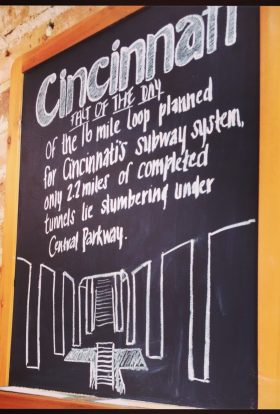 Cincinnati
FACT OF THE DAY
Of the 16 mile loop planned
for Cincinnati's subway system,
only 2.2 miles of completed
tunnels lie slumbering under
Central Parkway.